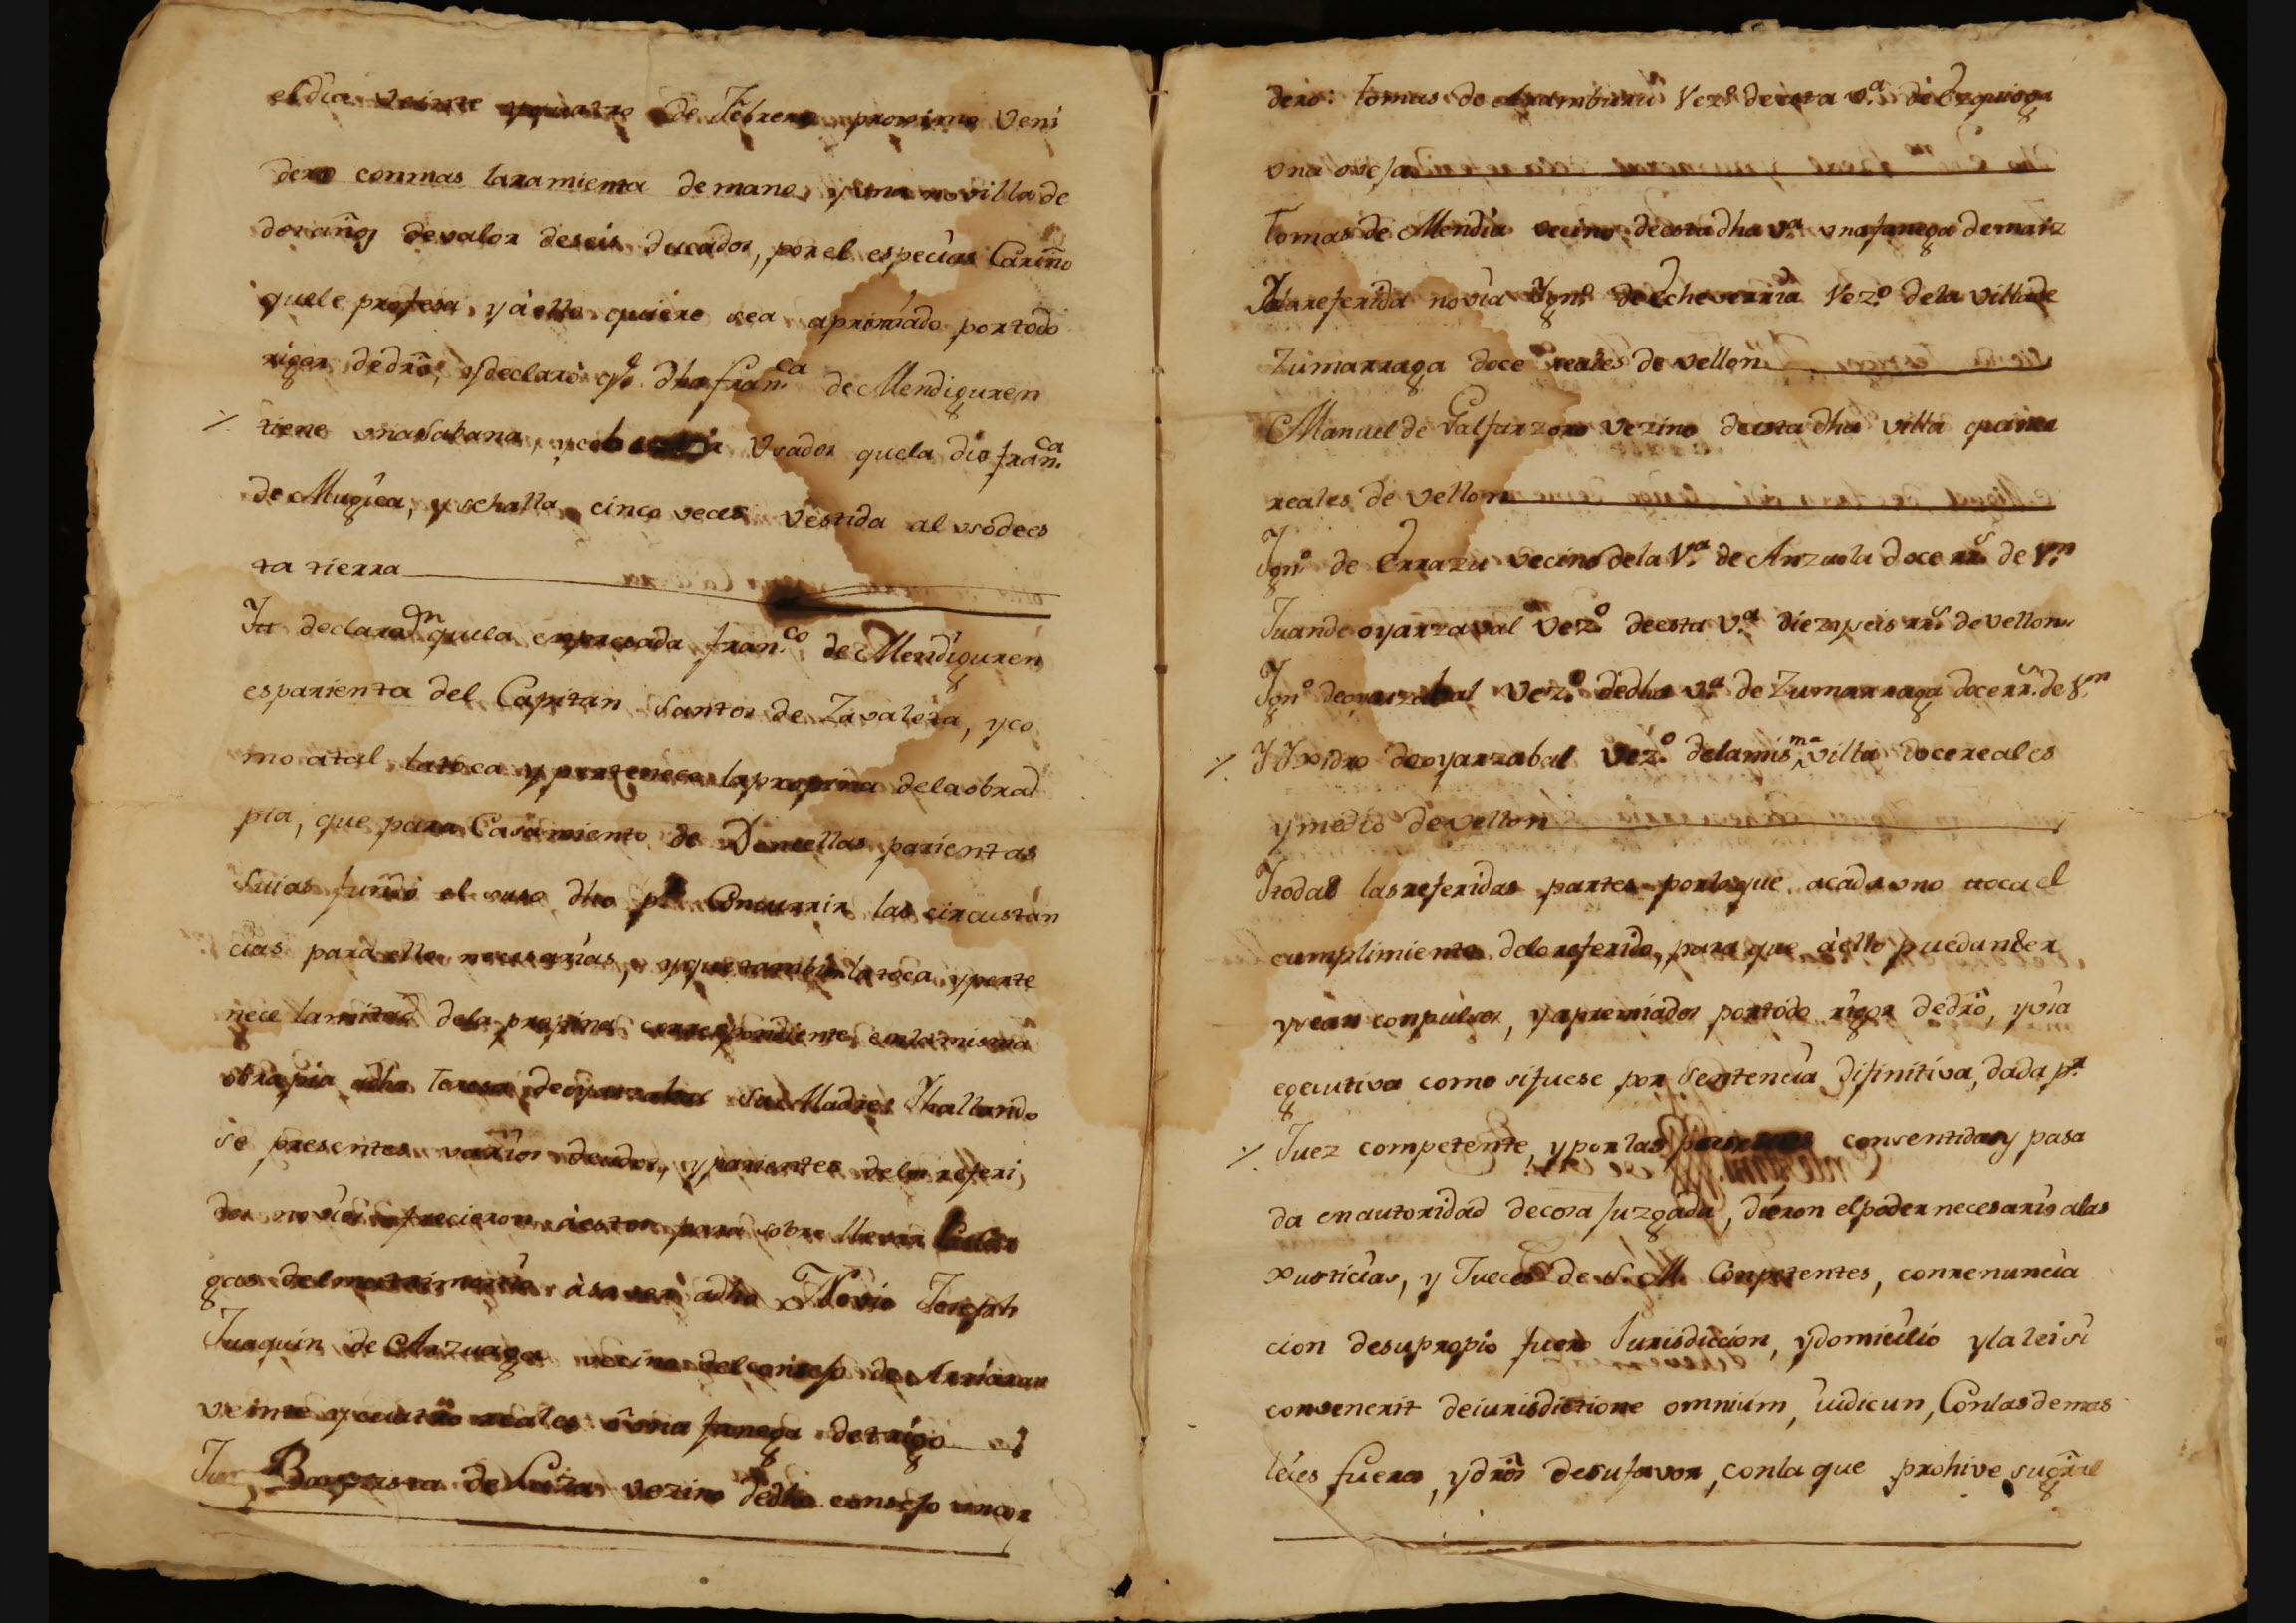 el dia veinte y quatro de Febrero proximo veni
dero conmas laramienta demano, y una novilla de
dos añoš devalor deseis ducados, por el especias Cariño
quele profesa, y à ello quiere sea apremiado por todo
rigor dedrõ, y declarò q.e dha Fran.ca de Mendiguren
tiene unasabana, y usados quela dio fran.ca
de Mugica, y sehalla cinco veces vestida al usòdees
ta tierra
Itt declarar.on quela expresada fran.ca de Mendiguren
esparienta del Capitan Santos de Zavaleta, y co
mo atal latoca y pertenece lapropina dela obra
pia, que para Casamiento de Doncellas parientas
Suias fundò el suso dho p.r Concurrir las circustan
cias para ello necesarias, y que tambien latoca y perte
nece lamitad dela propina correspondiente enlamisma
obrapia adha Teresa deoyarzabal su Madre. Y hallando
se presentes varios deudos, y parientes delos referi
dos novios ofrecieron àestos para sobre llevar lascar
gas delmatrimonio àsaver adho Novio Joseph
Juaquin de Aszuaga vecino delconsejo de Arriaran
veinte y cuatro reales ò una fanega detrigo
Baptista de vezino dedho consejo unaor
dero: Tomas de Aramburu Vez.o deesta v.a de Ezquioga
una oveja
Tomas de Mendia vecino deesta dha v.a una fanega demaiz
Yalareferida novia Ign.o de Echeverria Vez.o dela villade
Zumarraga doce reales de vellon
Manuel de Galfarzoro vezino deesta dha villa quince
reales de vellon
Ign.o de Errazu vecino dela V.a de Anzuola doce rr.s de V.n
Juande oyarzaval vez.o deesta v.a diezyseis rr.s devellon
Ign.o deoyarzabal vez.o dedha v.a de Zumarraga doce rr.s de V.n
Y Ysidro deoyarzabal Vez.o delamisma villa docereales
ymedio devellon
Ytodas lasreferidas partes porloque acada uno ttoca el
cumplimiento deloreferido, para que àello puedanser
ysean conpulsos, y apremiados portodo rigor dedrõ, yvia
egecutiva como sifuese por Sentencia difinitiva, dada p.r
Juez competente, y por las consentida y pasa
da enautoridad decosa Juzgada, dieron elpoder necesario alas
xusticias, y Jueces de S. M. Conpetentes, conrenuncia
cion desupropio fuero Jurisdiccion, ydomicilio yla lei si
convenerit deiurisdictione omnium, iudicun, Conlasdemas
leies fueros, ydrõs desufavor, conla que prohive sugñral